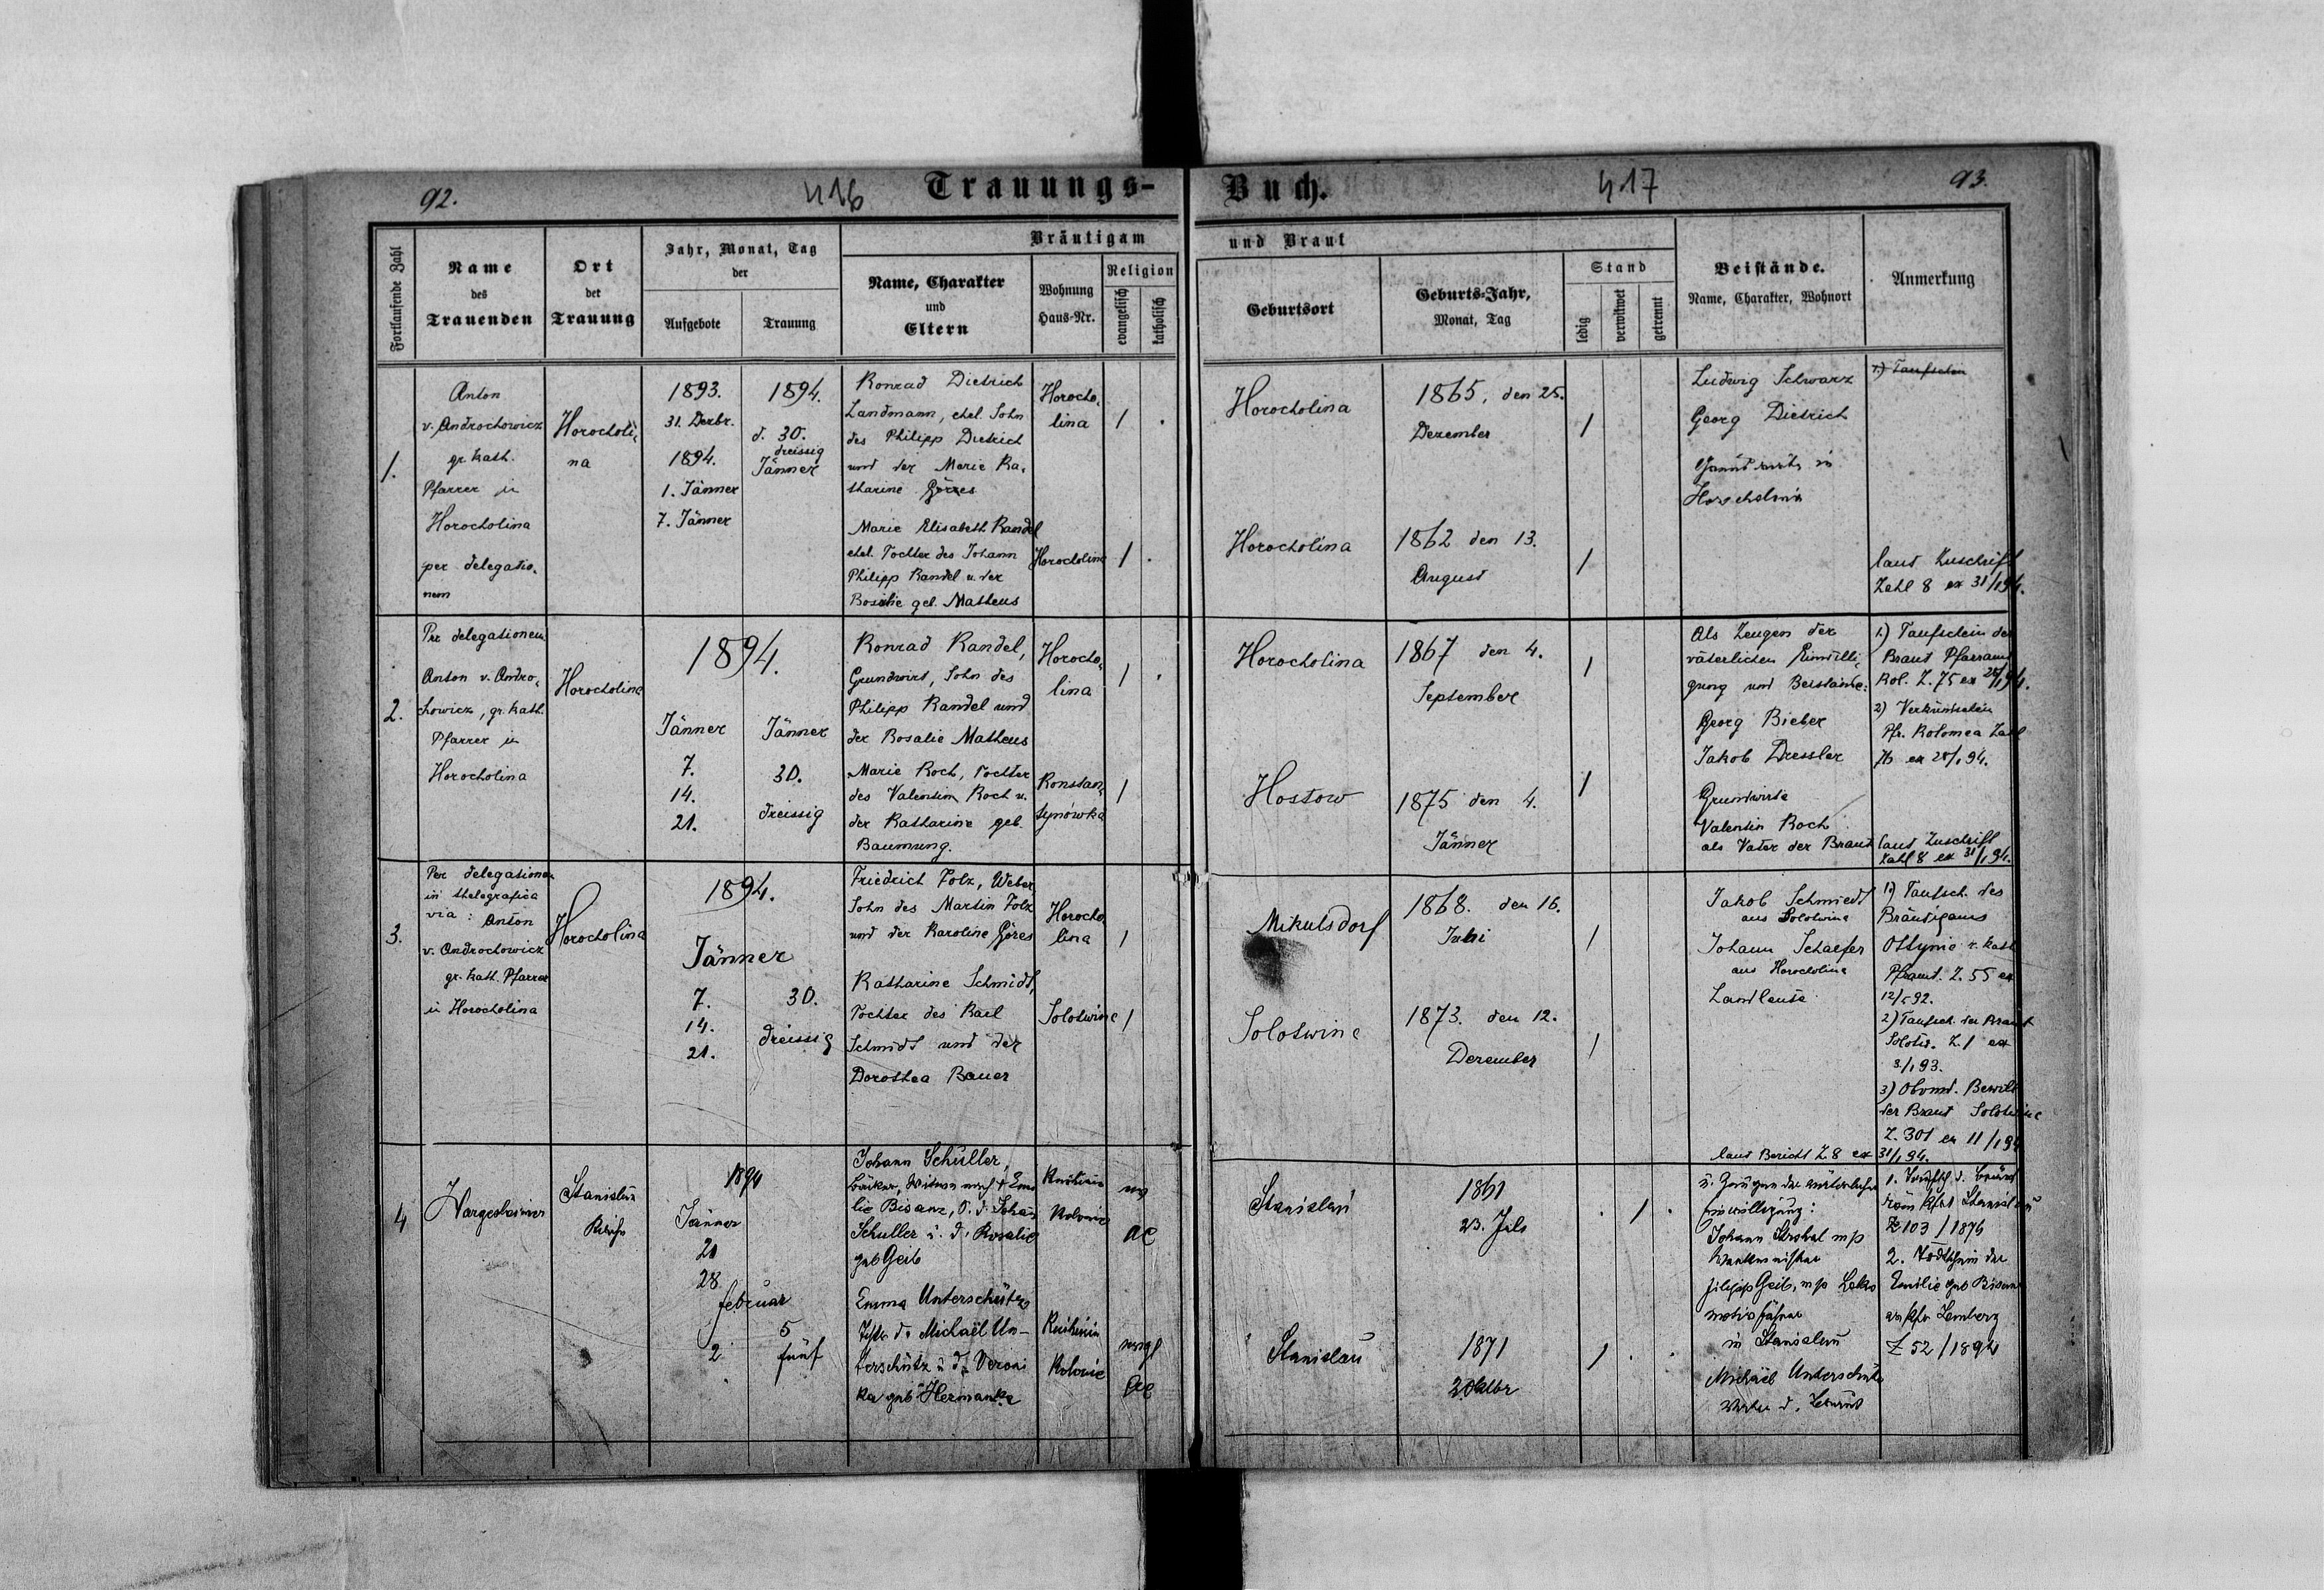 92.
416
Trauungs-
Buch.
417
93.
Fortlaufende Zahl
Name
des
Trauenden
Ort
der
Trauung
Jahr, Monat, Tag
der
Aufgebote
Trauung
Bräutigam
Name, Charakter
und
Eltern
Wohnung
Haus-Nr.
Religion
evangelisch
katholisch
und Braut
Geburtsort
Geburts-Jahr,
Monat, Tag
Stand
ledig
verwitwet
getrennt
Beistände.
Name, Charakter, Wohnort
Anmerkung
1.
Anton
v. Androchowicz
gr. kath.
Pfarrer in
Horocholina
per delegatio-
nem
Horocholi-
na
1893.
31. Dezbr.
1894.
1. Jänner
7. Jänner
1894.
d. 30.
dreissig
Jänner
Konrad Dietrich
Landmann, ehel. Sohn
des Philipp Dietrich
und der Marie Ka-
tharine Görres
Horocho-
lina
/
.
Marie Elisabeth Kandel
ehel. Tochter des Johann
Philipp Kandel u. der
Rosalie geb. Matheus
Horocholina
/
.
Horocholina
1865, den 25.
Dezember
/
Horocholina
1862 den 13.
August
/
Ludwig Schwarz
Georg Dietrich
in
Horocholina
1.) Taufschein
laut Zuschrift
Zahl 8 ex 31/1 94.
2.
Per delegationem
Anton v. Andro-
chowicz, gr. kath.
Pfarrer in
Horocholina
Horocholina
1894.
Jänner
7.
14.
21.
Jänner
30.
dreissig
Konrad Kandel,
Grundwirt, Sohn des
Philipp Kandel und
der Rosalie Matheus
Horocho-
lina
/
.
Marie Koch, Tochter
des Valentin Koch u.
der Katharine geb.
Baumung.
Konstan-
tynówka
/
Horocholina
1867 den 4.
September
/
Hostow
1875 den 4.
Jänner
/
Als Zeugen der
väterlichen Einwilli-
gung und Beistände:
Georg Bieber
Jakob Dressler
Grundwirte
Valentin Koch
als Vater der Braut
1.) Taufschein der
Braut Pfarramt
Kol. Z. 75 ex 28/1 94.
2) Verkündschein
Pfr. Kolomea Zahl
76 ex 28/1 94.
laut Zuschrift
Zahl 8 ex 31/1 94.
3.
Per delegationem
in thelegrafica
via: Anton
v. Androchowicz
gr. kath. Pfarrer
in Horocholina
Horocholina
1894.
Jänner
7.
14.
21.
30.
dreissig
Friedrich Folz, Weber
Sohn des Martin Folz
und der Karoline Göres
Horocho-
lina
/
Katharine Schmidt,
Tochter des Karl
Schmidt und der
Dorothea Bauer
Solotwine
/
Mikulsdorf
1868. den 16.
Juli
/
Solotwine
1873. den 12.
Dezember
/
Jakob Schmiedt
aus Solotwina
Johann Schaefer
aus Horocholina
Landleute
1.) Taufsch. des
Bräutigams
Ottynia r. kath
Pframt. Z. 55 ex
12/5 92.
2) Taufsch. der Braut
Solotw. Z. 1 ex
3/1 93.
3) Obvmd. Bewill
der Braut Solotwine
Z. 301 ex 11/1 94
laut Bericht Z. 8 ex 31/1 94.
4
Hargesheimer
Stanislau
Kirche
1894
Jänner
21
28
februar
2
5
fünf
Johann Schüller,
Bäcker, Witwer nach + Emi
lie Bisanz, S. d. Johan
Schuller u. d. Rosalie
geb Geib
Knihinin
Kolonie
ev
AC
Emma Unterschütz
Tchtr d. Michaël Un-
terschütz u. d. Veroni
ka geb Hermanka
Knihinin
Kolonie
evngl
AC
Stanislau
1861
23. Juli
/
Stanislau
1871
/
u. Zeugen der väterlichen
Einwilligung:
Johann Strohal m/p
Filipp Geib, m/p Loko
motivführer
in Stanislau
Michael Unterschütz
Vater d. Braut
1. d. Bräut
röm kfrt Stanislau
Z 103/1876
2. Todtschein der
Emilie geb Bisanz
ev Pfr Lemberg
Z 52/1894